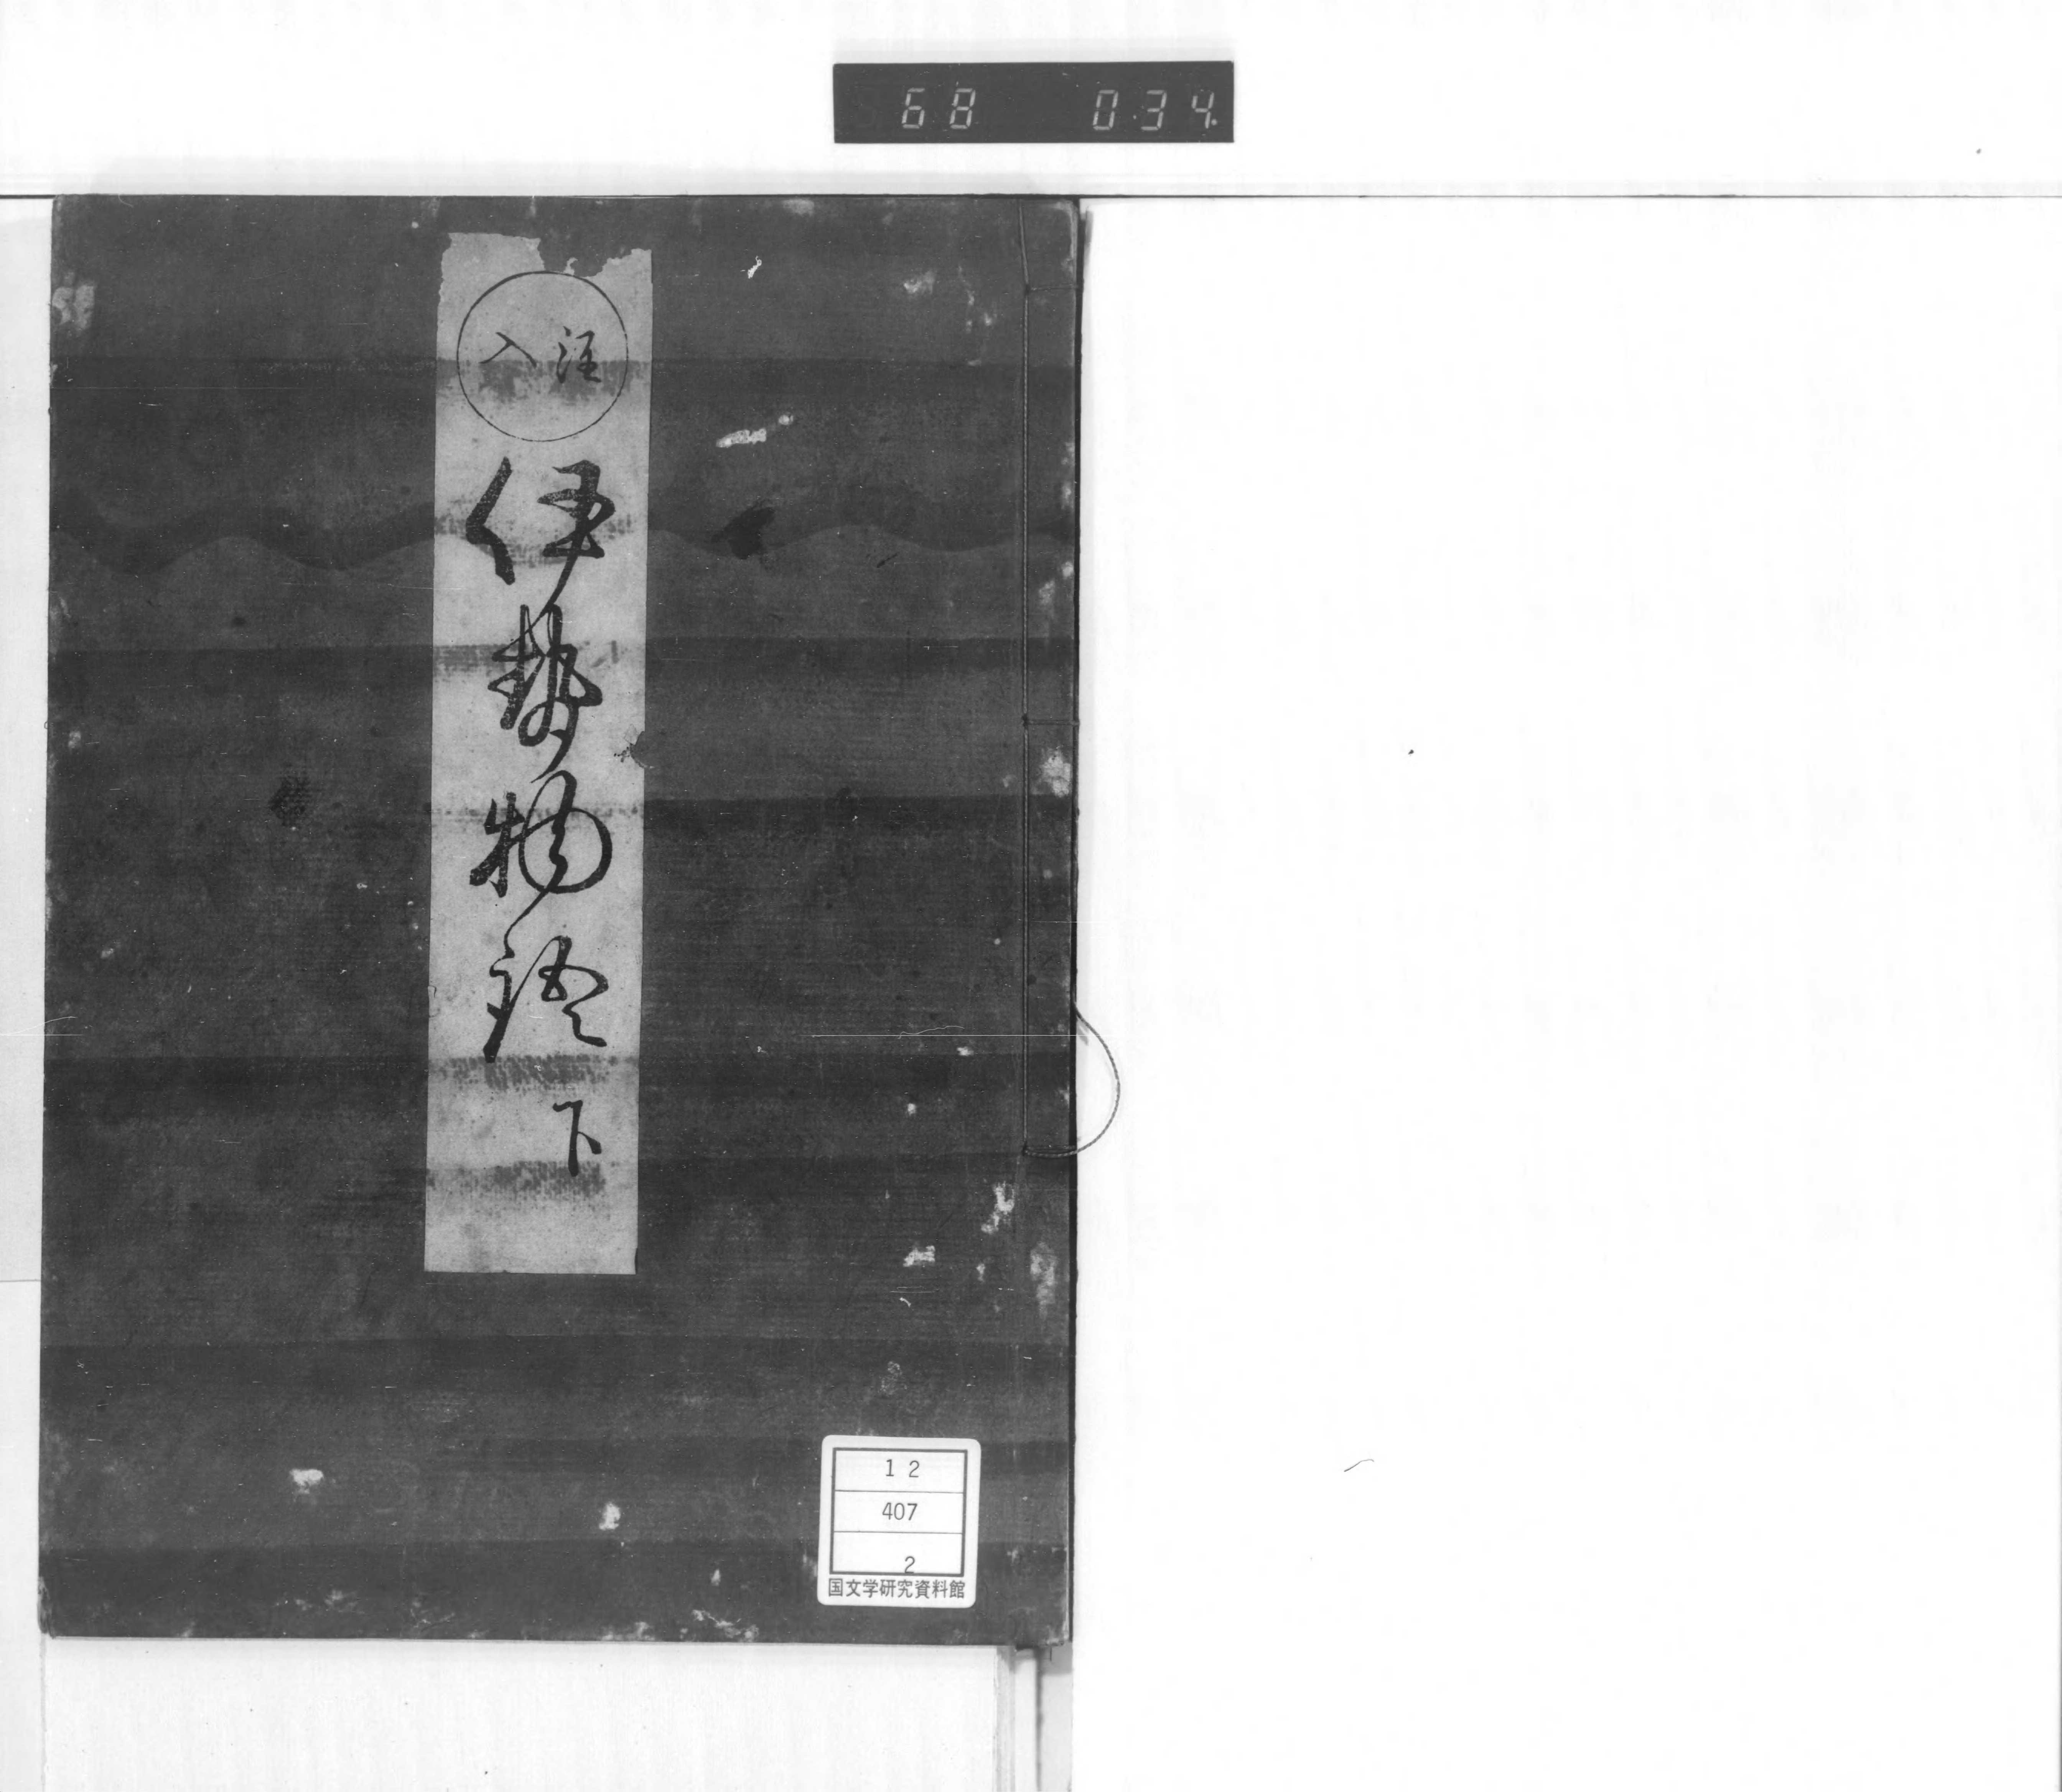 68 034
注入
伊勢物語 下
12
407
2
国文学研究資料館